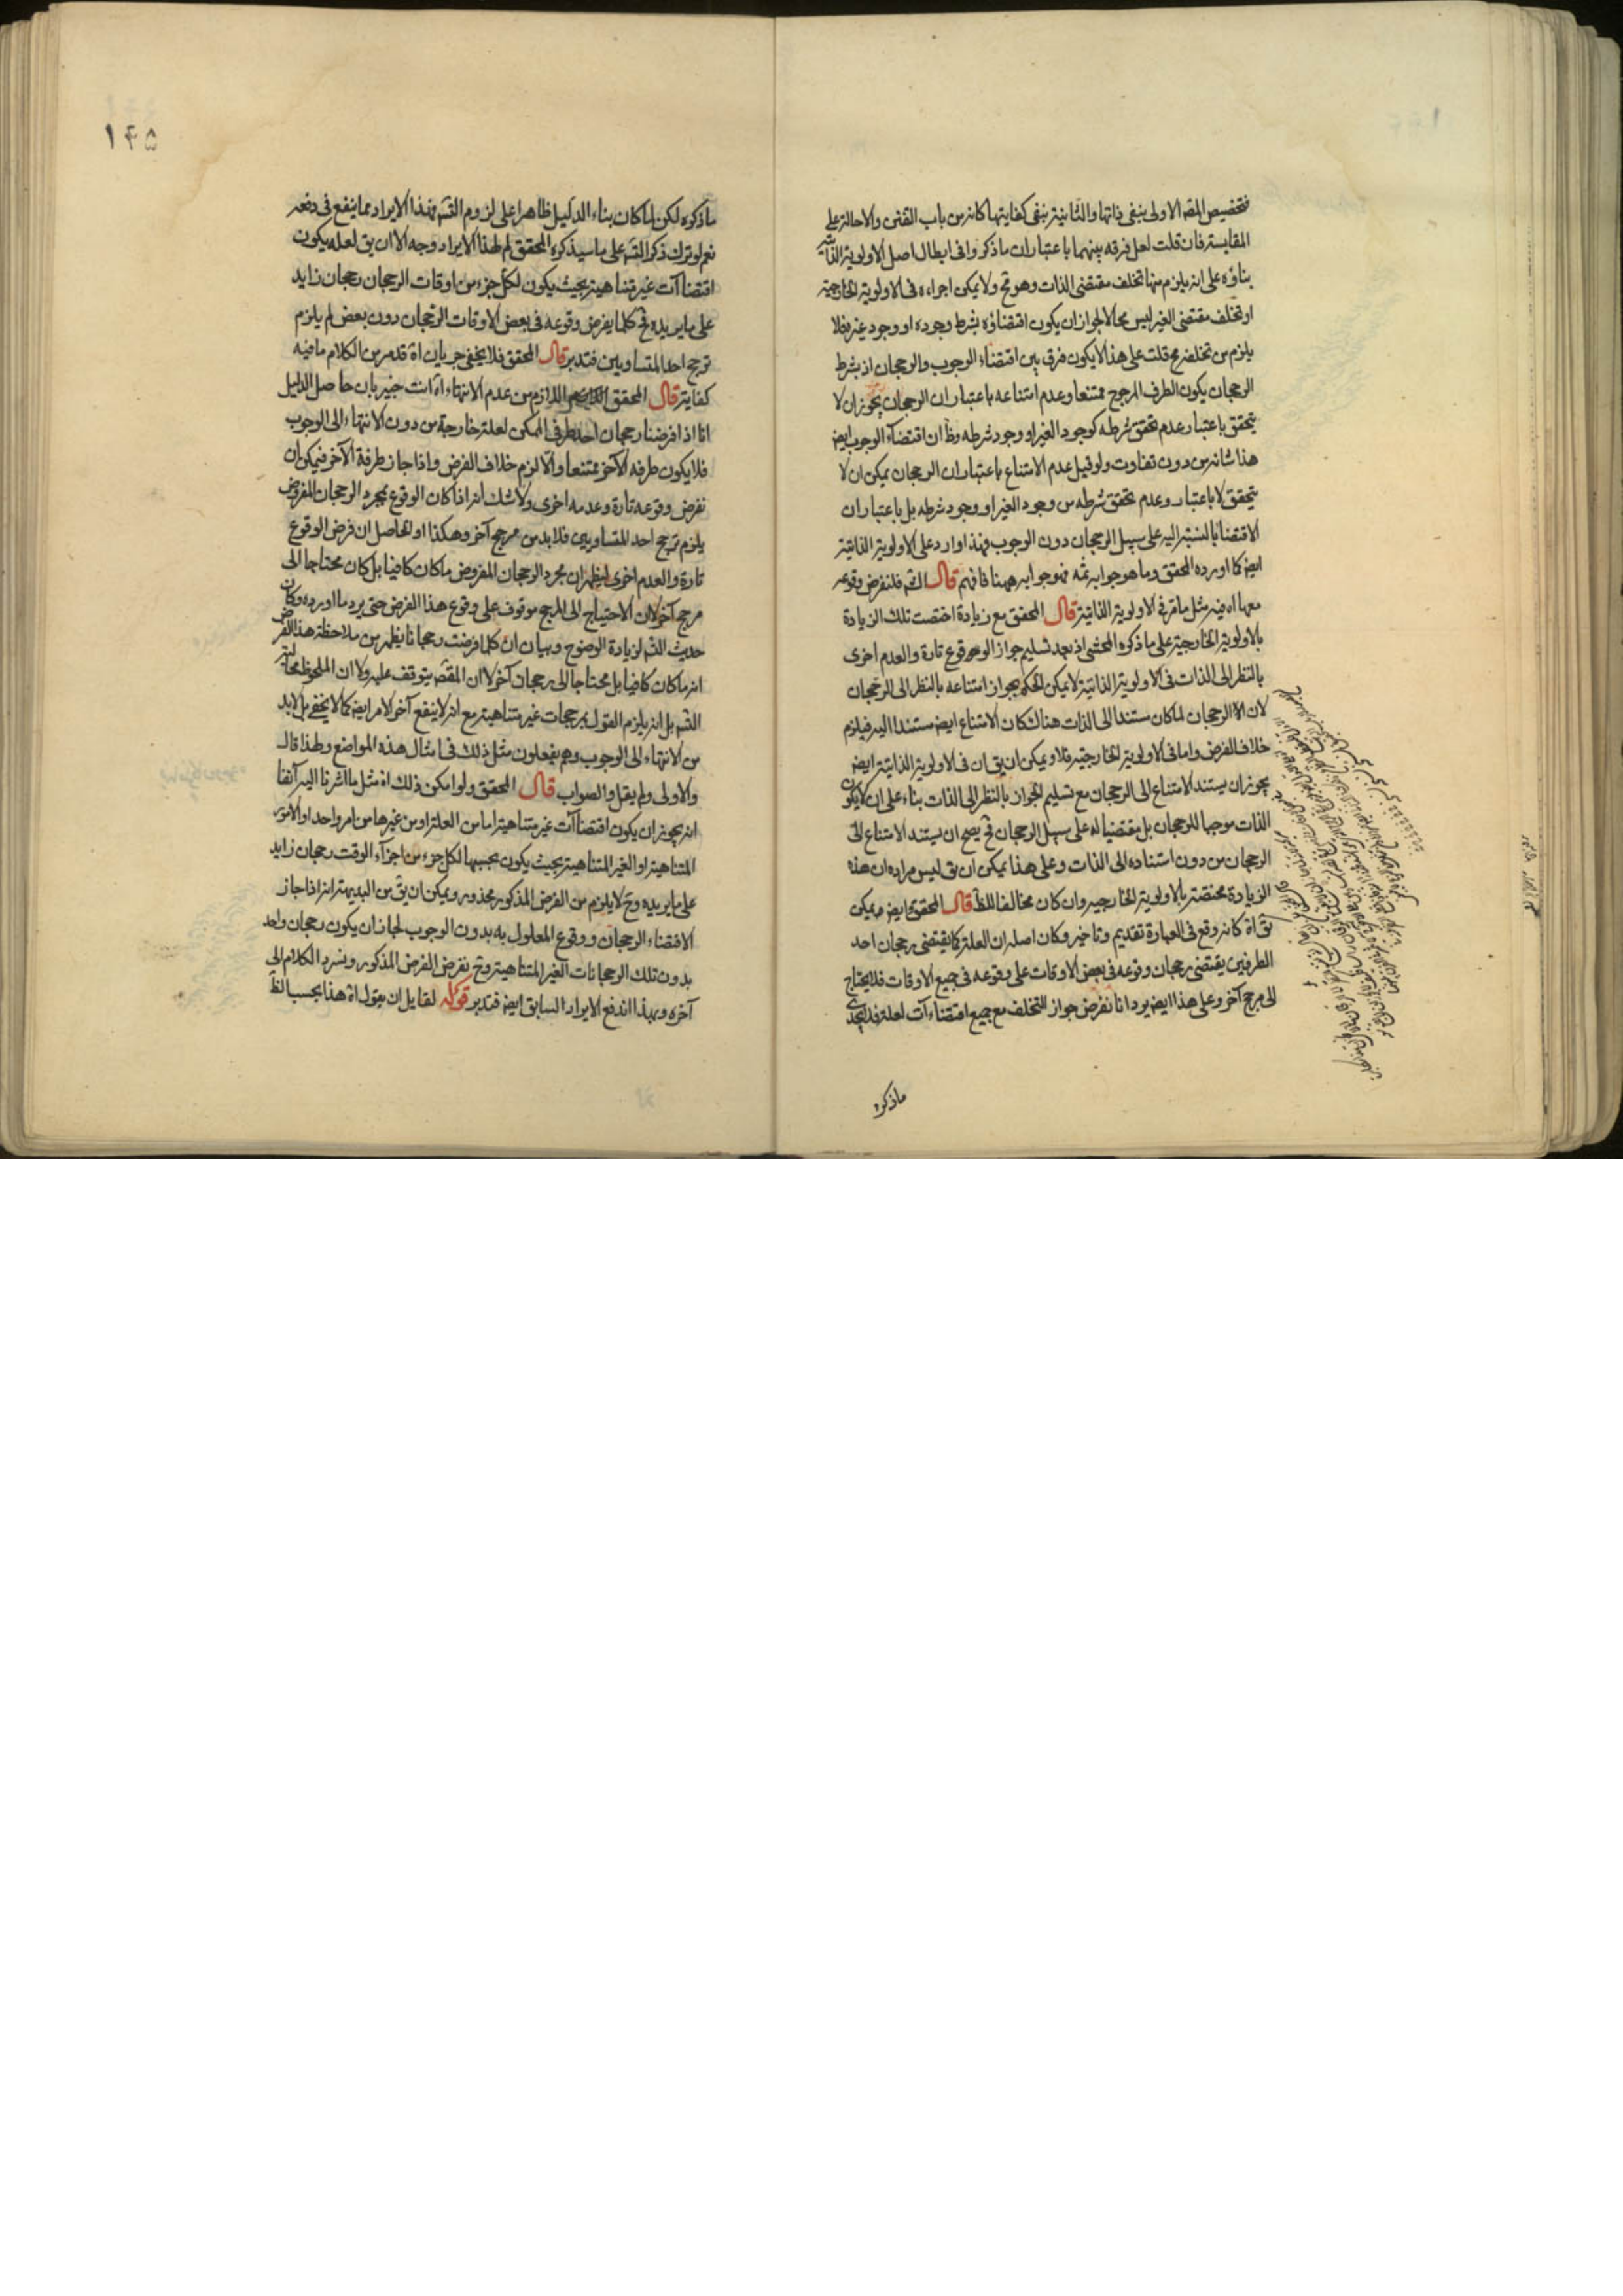 فتخصيص المقه الاولى بنفى ذاتها والثانية بنفى كفايتها كانه من باب التفنن والاحالة على
المقايسة فان قلت لعل فرقه بينهما باعتبار ان ما ذكروا فى ابطال اصل الاولوية الذاتية
بناؤه على انه يلزم منها تخلف مقتضى الذات وهو مح ولا يمكن اجراءه فى الاولوية الخارجية
اذ تخلف مقتضى الغير ليس محالا لجواز ان يكون اقتضاؤه بشرط وجوده او وجود غيره فلا
يلزم من تخلفه مح قلت على هذا لا يكون فرق بين اقتضاء الوجوب والرجحان اذ بشرط
الرجحان يكون الطرف المرجوح ممتنعا وعدم امتناعه باعتبار ان الرجحان يجوز ان لا
يتحقق باعتبار عدم تحقق شرطه كوجود الغير او وجود شرطه وظ ان اقتضاء الوجوب ايض
هذا شانه من دون تفاوت ولو قيل عدم الامتناع باعتبار ان الرجحان يمكن ان لا
يتحقق لا باعتبار وعدم تحقق شرطه من وجود الغير او وجود شرطه بل باعتبار ان
الاقتضا بالنسبة اليه على سبيل الرجحان دون الوجوب فهذا وارد على الاولوية الذاتية
ايض كما اورده المحقق وما هو جوابه ثمه فهو جوابه ههنا فافهم قال الش فلنفرض وقوعه
معها اه فيه مثل ما مر فى الاولوية الذاتية قال المحقق مع زيادة اختصت تلك الزيادة
بالاولوية الخارجية على ما ذكره المحشى اذ بعد تسليم جواز الوقوع تارة والعدم اخرى
بالنظر الى الذات فى الاولوية الذاتية لا يمكن الحكم بجواز امتناعه بالنظر الى الرجحان
لان الرجحان لما كان مستندا الى الذات هناك كان الامتناع ايض مستندا اليه فيلزم
خلاف الفرض واما فى الاولوية الخارجية فلا ويمكن ان يق ان فى الاولوية الذاتية ايض
يجوز ان يستند الامتناع الى الرجحان مع تسليم الجواز بالنظر الى الذات بناء على ان لا يكون
الذات موجبا للرجحان بل مقتضيا له على سبيل الرجحان فح يصح ان يستند الامتناع الى
الرجحان من دون استناده الى الذات وعلى هذا يمكن ان يق ليس مراده ان هذه
الزيادة مختصة بالاولوية الخارجيه وان كان مخالفا للظ قال المحقق ايض ويمكن
يق اه كانه وقع فى العبارة تقديم وتاخير وكان اصله ان العلة كما يقتضى رجحان احد
الطرفين يقتضى رجحان وقوعه فى بعض الاوقات على وقوعه فى جميع الاوقات فلا يحتاج
الى مرجح آخر وعلى هذا ايض يرد انا نفرض جواز التخلف مع جميع اقتضاءات لعلة فلا يجدى
ماذكره
١٤٥
ماذكره لكن لما كان بناء الدليل ظاهرا على لزوم القسم فهذا الايراد مما ينفع فى دفعه
نعم لو ترك ذكر القسم على ما سيذكره المحقق لم لهذا الايراد وجه الا ان يق لعله يكون
اقتضاآت غير متناهية بحيث يكون لكل جزء من اوقات الرجحان رجحان زايد
على ما يريده فح كلما يفرض وقوعه فى بعض الاوقات الرجحان دون بعض لم يلزم
ترجح احد المتساويين فتدبر قال المحقق فلا يخفى جريان اه قد مر من الكلام ما فيه
كفاية قال المحقق اللازم من عدم الانتهاء اه انت خبير بان حاصل الدليل
انا اذا فرضنا رجحان احد طرفى الممكن لعلة خارجة من دون الانتهاء الى الوجوب
فلا يكون طرفه الآخر ممتنعا والا لزم خلاف الفرض واذا جاز طرفه الآخر فيمكن ان
نفرض وقوعه تارة وعدمه اخرى ولا شك انه اذا كان الوقوع بمجرد الرجحان المفروض
يلزم ترجح احد المتساويين فلا بد من مرجح آخر وهكذا او الحاصل ان فرض الوقوع
تارة والعدم اخرى ليظهر ان مجرد الرجحان المفروض ما كان كافيا بل كان محتاجا الى
مرجح آخر لا ان الاحتياج الى المرجح موقوف على وقوع هذا الفرض حتى يرد ما اورده وكان
حديث القسم لزيادة الوضوح وبيان ان كلما فرضت رجحانا يظهر من ملاحظة هذا الفرض
انه ما كان كافيا بل محتاجا الى رجحان آخر لا ان المقصه يتوقف عليه ولا ان الملحوظ محالية
القسم بل انه يلزم القول بمرجحات غير متناهية مع انه لا ينفع آخر الامر ايض كما لا يخفى بل لا بد
من الانتهاء الى الوجوب وهم يفعلون مثل ذلك فى امثال هذه المواضع ولهذا قال
والاولى ولم يقل والصواب قال المحقق ولو امكن ذلك اه مثل ما اشرنا اليه آنفا
انه يجوز ان يكون اقتضاآت غير متناهية اما من العلة او من غيرها من امر واحد او الامور
المتناهية او الغير المتناهية بحيث يكون بحسبها لكل جزء من اجزاء الوقت رجحان زايد
على ما يريده وح لا يلزم من الفرض المذكور محذور ويمكن ان يق من البديهة انه اذا جاز
الاقتضاء الرجحان ووقوع المعلول به بدون الوجوب لجاز ان يكون رجحان واحد
بدون تلك الرجحانات الغير المتناهية وح نفرض الفرض المذكور ونسرد الكلام الى
آخره وبهذا اندفع الايراد السابق ايض فتدبر قوله لقايل ان يقول اه هذا بحسب الظ